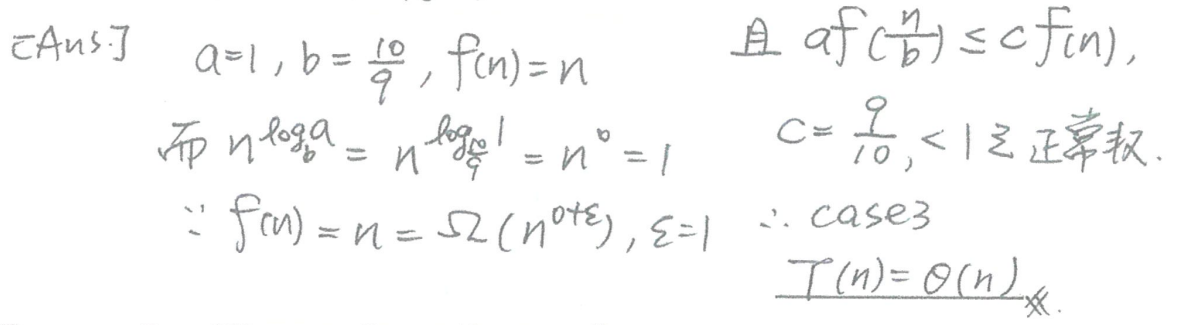 [Ans.] a=1, b=10/9, f(n)=n
而 n^{log_b a} = n^{log_{10/9} 1} = n^0 = 1
∵ f(n) = n = Ω(n^{0+ε}), ε=1
且 af(n/b) ≤ c f(n),
c = 9/10, <1 之正常数.
∴ case3
T(n) = θ(n) ※.